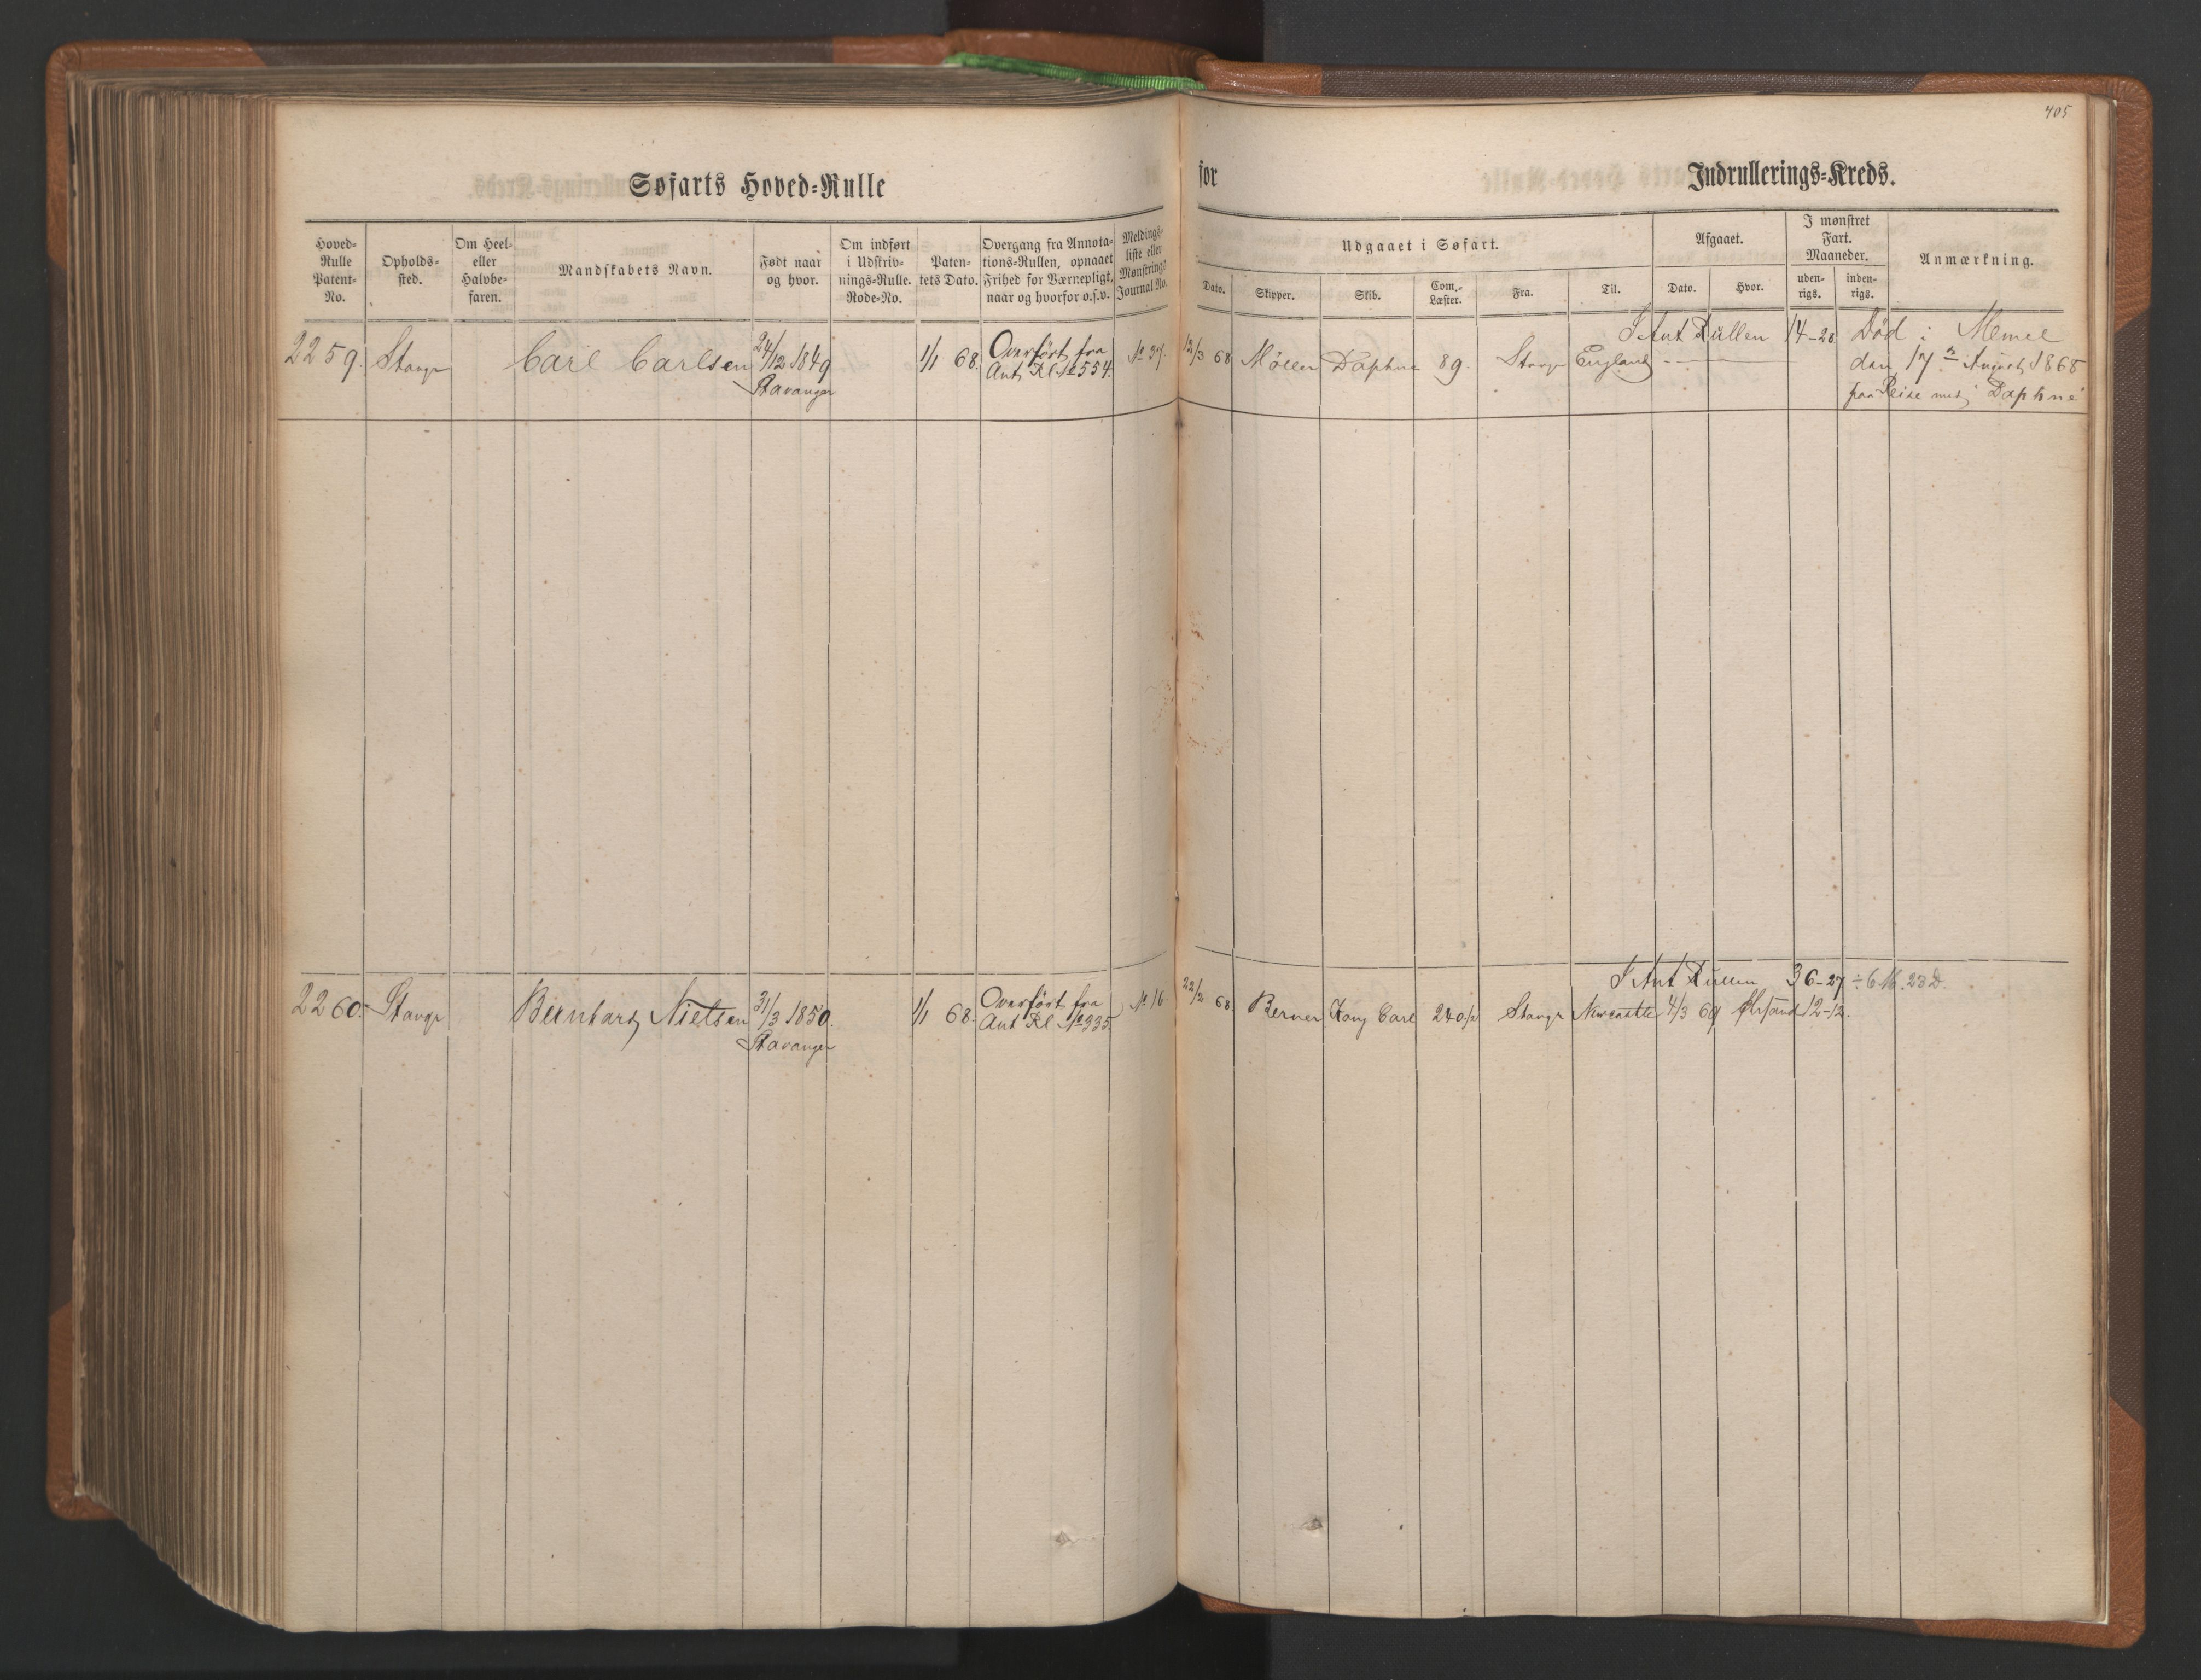 405
Søfarts Hoved-Rulle for Indrullerings-Kreds.
Hoved-Rulle Patent-No.
Opholds-sted.
Om Heel- eller Halvbe-faren.
Mandskabets Navn.
Født naar og hvor.
Om indført i Udskriv-nings-Rulle. Rode-No.
Paten-tets Dato.
Overgang fra Annota-tions-Rullen, opnaaet Frihed for Værnepligt, naar og hvorfor o.s.v.
Meldings-liste eller Mønstrings Journal No.
Udgaaet i Søfart.
Dato.
Skipper.
Skib.
Com.-Læster.
Fra.
Til.
Afgaaet.
Dato.
Hvor.
I mønstret Fart. Maaneder.
uden-rigs.
inden-rigs.
Anmærkning.
I Ant Rullen 14-28 Død i Memel
2259. Stavgr Carl Carlsen 24/12 1849 1/1 68. Overført fra No 37. 12/3 68 Möller Daphne 89. Stavgr England den 17 August 1868
Stavanger Ant. Rl. No 554. paa Reise med Daphne
I Ant Rullen 36-27 ÷ 6 M. 23 D.
2260. Stavgr Bernhard Nielsen 31/3 1850. 1/1 68. Overført fra No 16 22/2 68. Berner Kong Carl 240½ Stavgr Newcastle 4/3 69 Chrsand 12-12.
Stavanger Ant Rl No 335